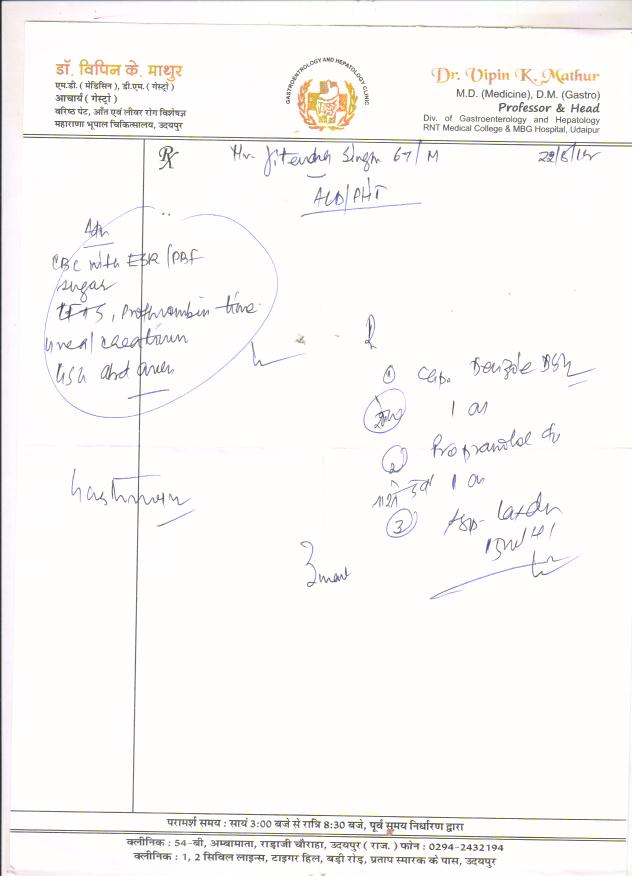 डॉ. विपिन के. माथुर
एम.डी. ( मेडिसिन ), डी.एम. ( गेस्ट्रो )
आचार्य ( गेस्ट्रो )
वरिष्ठ पेट, आँत एवं लीवर रोग विशेषज्ञ
महाराणा भूपाल चिकित्सालय, उदयपुर
GASTROENTROLOGY AND HEPATOLOGY CLINIC
Dr. Vipin K. Mathur
M.D. (Medicine), D.M. (Gastro)
Professor & Head
Div. of Gastroenterology and Hepatology
RNT Medical College & MBG Hospital, Udaipur
Rx
Mr. Jitendra Singh 67/M
ALD/PHT
CBC with ESR/PBF
sugar
LFTS, Prothrombin time
urea/creatinin
USG abd
① Cap. DSR
1 od
② Propranolol
1 od
③
परामर्श समय : सायं 3:00 बजे से रात्रि 8:30 बजे, पूर्व समय निर्धारण द्वारा
क्लीनिक : 54-बी, अम्बामाता, राड़ाजी चौराहा, उदयपुर ( राज. ) फोन : 0294-2432194
क्लीनिक : 1, 2 सिविल लाइन्स, टाइगर हिल, बड़ी रोड़, प्रताप स्मारक के पास, उदयपुर